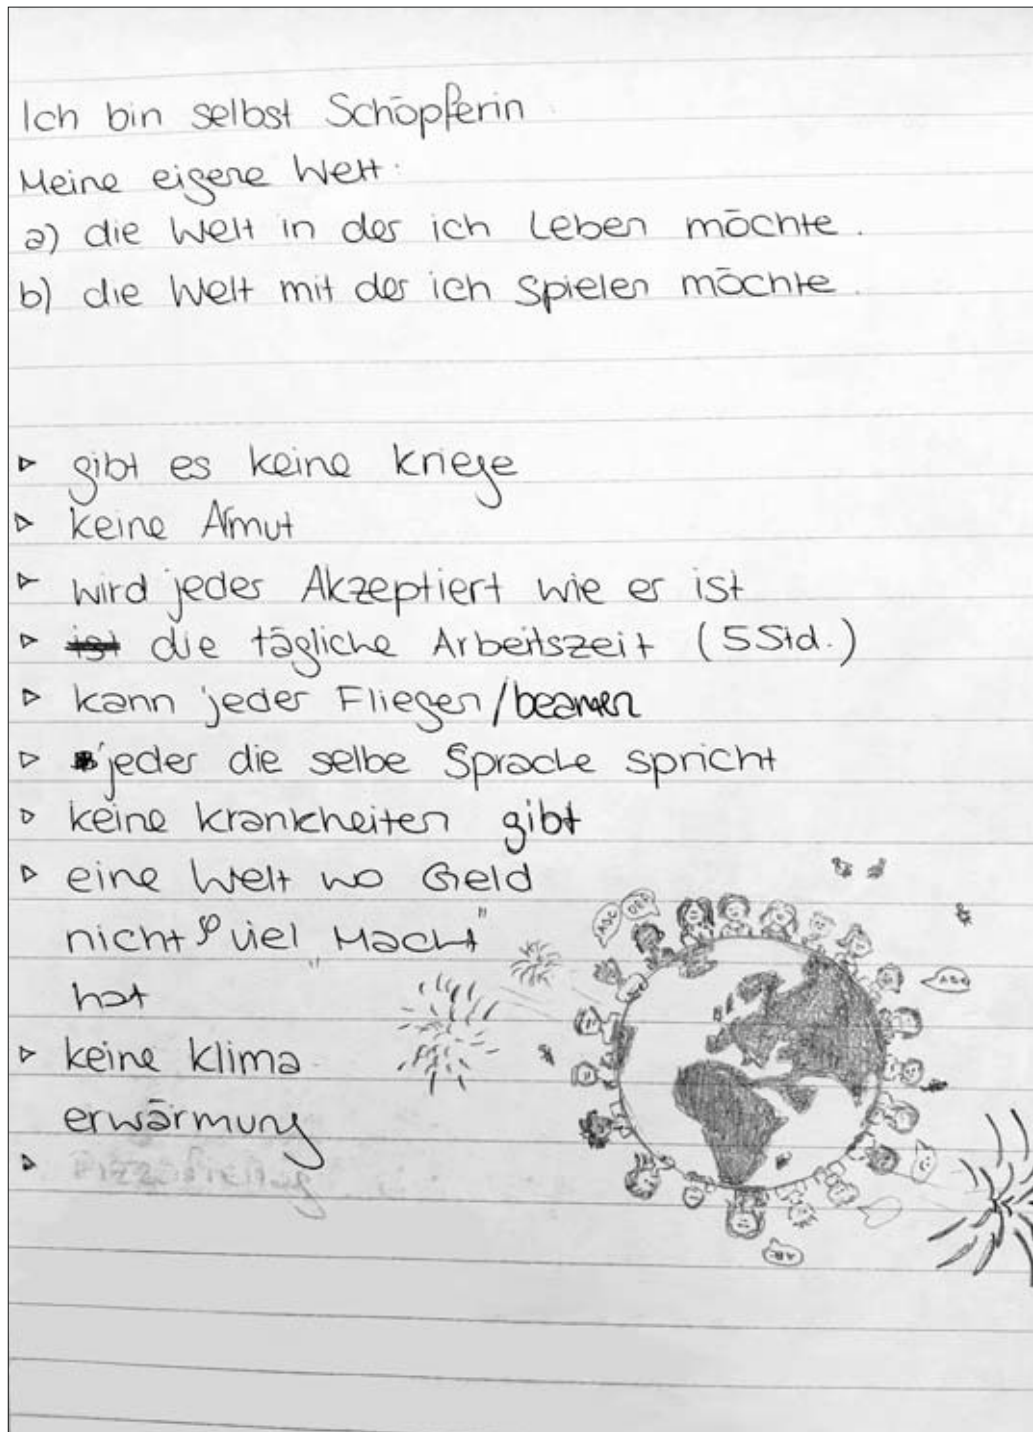 Ich bin selbst Schöpferin.
Meine eigene Welt:
a) die Welt in der ich Leben möchte.
b) die Welt mit der ich Spielen möchte.
▹ gibt es keine Kriege
▹ keine Armut
▹ wird jeder Akzeptiert wie er ist
▹ ist die tägliche Arbeitszeit (5Std.)
▹ kann jeder Fliegen/beamen
▹ jeder die selbe Sprache spricht
▹ keine krankheiten gibt
▹ eine Welt wo Geld
nicht so viel „Macht"
hat
▹ keine Klima
erwärmung
▹
ABC
ABC
ABC